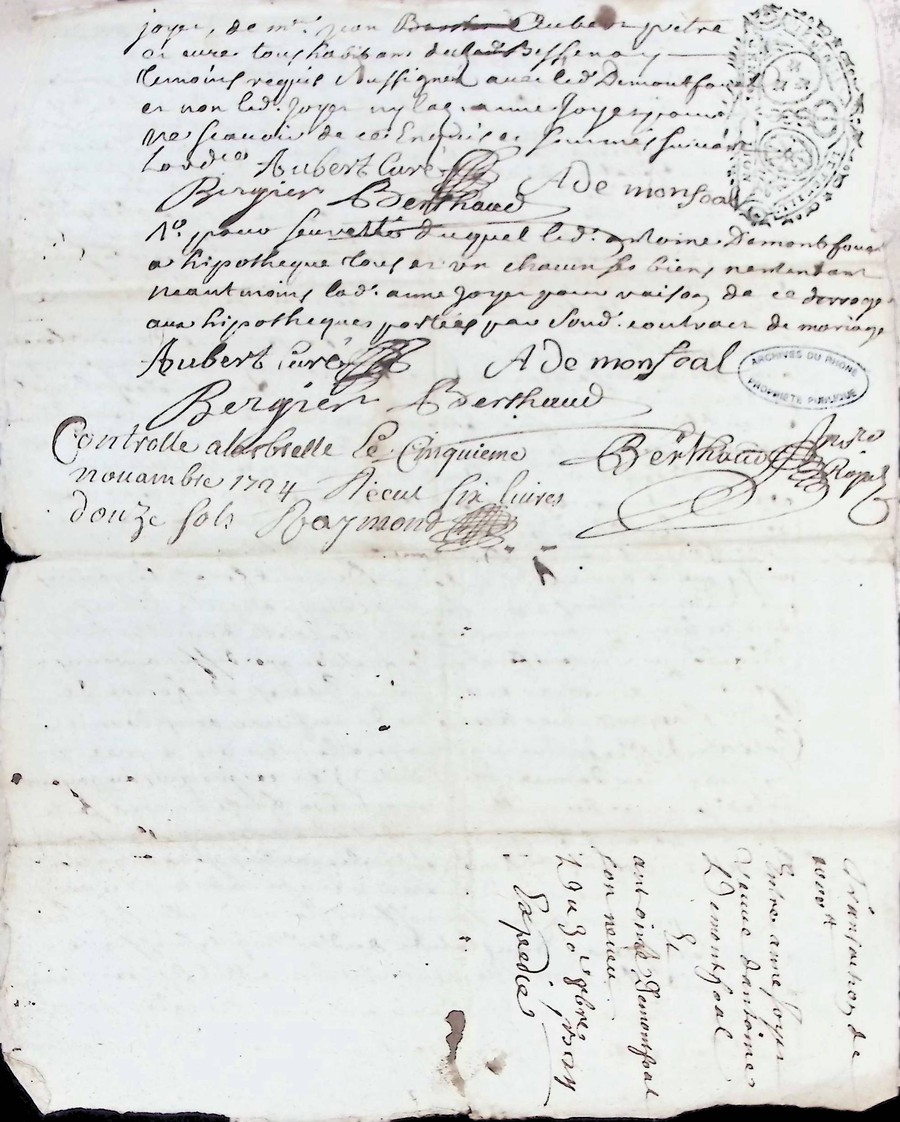 joyer, de mre jean Aubert pretre
et curé tous habitans dud. Bessenay
temoins requis Soussignez avec led. Demontfoual
et non led. Joyer ny lad. anne Joyer pour
ne scavoir de ce Enquises Sommés suivant
Lordce Aubert Curé
Bergier Berthaud A de monfoal
1o. pour seuretté duquel led. antoine Demontfoual
a hipotheque tous et un chacun ses biens nentendant
neantmoins lad. anne Joyer pour raison de ce derroger
aux hipotheques portées par sond. contract de mariage
Aubert Curé A de monfoal
ARCHIVES DU RHONE
PROPRIÉTÉ PUBLIQUE
Bergier Berthaud
Controlle alarbrelle Le Cinquieme
nouambre 1724 Recut six liures
douze sols Raymont
Berthaud Nore Royal
Transaction de
Entre anne Joyer
veuve dantoine
Demontfoal
Et
antoine Demontfoal
son neveu
Du 30e 8bre
Expedié